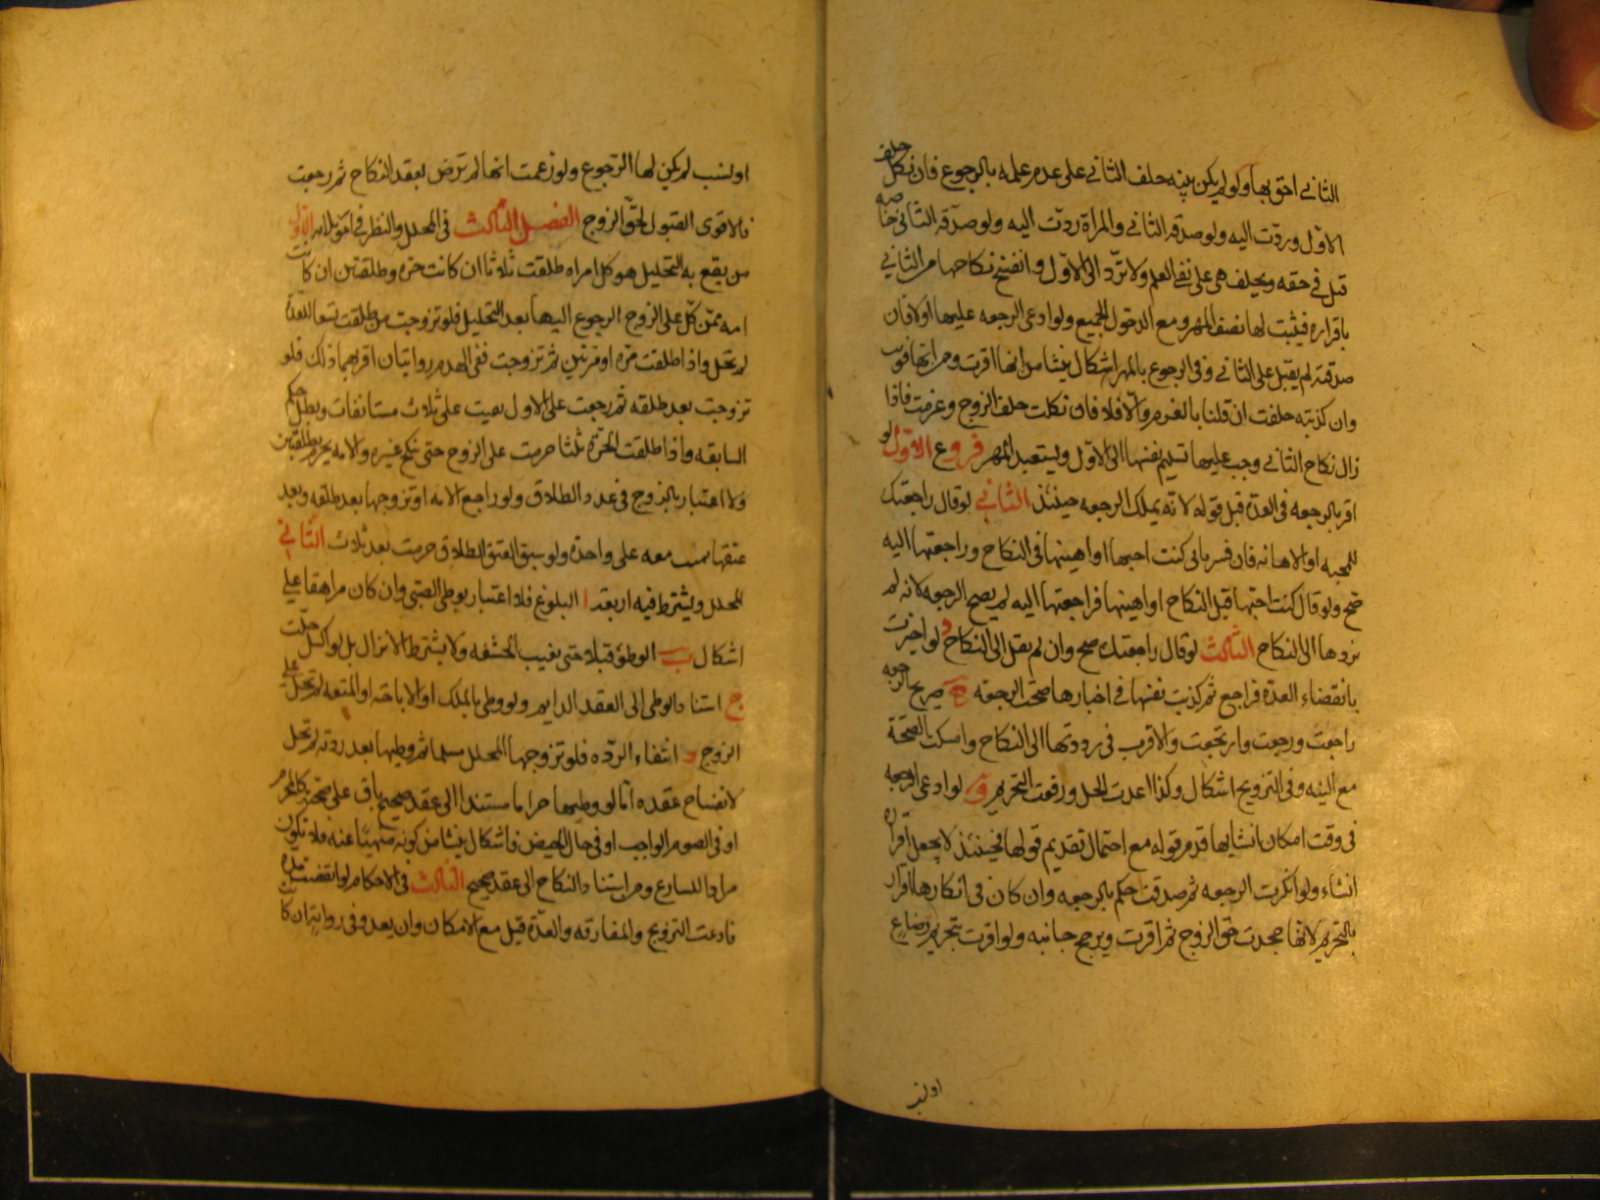 الثانى احق بها ولو لم يكن بينه حلف الثانى على عدم علمه بالرجوع فان نكل حلف
الاول وردت اليه ولو صدقه الثانى والمراة ردت اليه ولو صدقه الثانى خاصه
قبل فى حقه ويحلف هى على نفى العلم ولا ترد الى الاول وانفسخ نكاحها من الثانى
باقراره فيثبت لها نصف المهر ومع الدخول الجميع ولو ادعى الرجعه عليها اولا فان
صدقته لم يقبل على الثانى وفى الرجوع بالمهر اشكال ينشا من انها اقرت ومن انها فوت
وان كذبته حلفت ان قلنا بالغرم والا فلا فان نكلت حلف الزوج وغرمت فاذا
زال نكاح الثانى وجب عليها تسليم نفسها الى الاول ويستعيد المهر فروع الاول لو
اقر بالرجعه فى العدة قبل قوله لانه يملك الرجعه حينئذ الثانى لو قال راجعتك
للمحبه او الاهانه فان فسر بانى كنت احبها او اهينها فى النكاح وراجعتها اليه
صح ولو قال كنت احبها قبل النكاح او اهينها فراجعتها اليه لم يصح الرجعه لانه لم
يردها الى النكاح الثالث لو قال راجعتك صح وان لم يقل الى النكاح د لو اخبرت
بانقضاء العدة فراجع ثم كذبت نفسها فى اخبارها صحت الرجعه ه صريح الرجعه
راجعت ورجعت وارتجعت والاقرب فى رددتها الى النكاح وامسكت الصحة
مع النيه وفى التزويج اشكال وكذا اعدت الحل ورفعت التحريم و لو ادعى الرجعه
فى وقت امكان انشايها قدم قوله مع احتمال تقديم قولها فحينئذ لا يجعل اقراره
انشاء ولو انكرت الرجعه ثم صدقت حكم بالرجعه وان كان فى انكارها اقرار
بالتحريم لانها جحدت حق الزوج ثم اقرت ويرجح جانبه ولو اقرت بتحريم رضاع
او نسب
او نسب لم يكن لها الرجوع ولو زعمت انها لم ترض بعقد النكاح ثم رجعت
فالاقوى القبول لحق الزوج الفصل الثالث فى المحلل والنظر فى امور ثلاثه الاول
من يقع به التحليل هو كل امراه طلقت ثلاثا ان كانت حره وطلقتين ان كانت
امه ممن كل على الزوج الرجوع اليها بعد التحليل فلو تزوجت من طلقت تسعا للعدة
لم تحل واذا طلقت مره او مرتين ثم تزوجت ففى الهدم روايتان اقربهما ذلك فلو
تزوجت بعد طلقه ثم رجعت على الاول بقيت على ثلاث مستانفات وبطل حكم
السابقه واذا طلقت الحرة ثلثا حرمت على الزوج حتى تنكح غيره والامه يحرم بطلقتين
ولا اعتبار بالزوج فى عدد الطلاق ولو راجع الامه او تزوجها بعد طلقه وبعد
عتقها بقيت معه على واحدة ولو سبق العتق الطلاق حرمت بعد ثلاث الثانى
المحلل ويشترط فيه اربعة ا البلوغ فلا اعتبار بوطى الصبى وان كان مراهقا على
اشكال ب الوطؤ قبلا حتى تغيب الحشفه ولا يشترط الانزال بل لو اكسل حلت
ج استناد الوطى الى العقد الدايم ولو وطى بالملك او الاباحة او المتعه لم تحل على
الزوج د انتفاء الردة فلو تزوجها المحلل مسلما ثم وطيها بعد ردته لم تحل
لانفساخ عقده اما لو وطيها حراما مستندا الى عقد صحيح باق على صحته كالمحرم
او فى الصوم الواجب او فى حال الحيض فاشكال ينشا من كونه منهيا عنه فلا يكون
مرادا للشارع ومن استناد النكاح الى عقد صحيح الثالث فى الاحكام لو انقضت مدة
فادعت التزويج والمفارقه والعدة قبل مع الامكان وان بعد وفى رواية ان كان